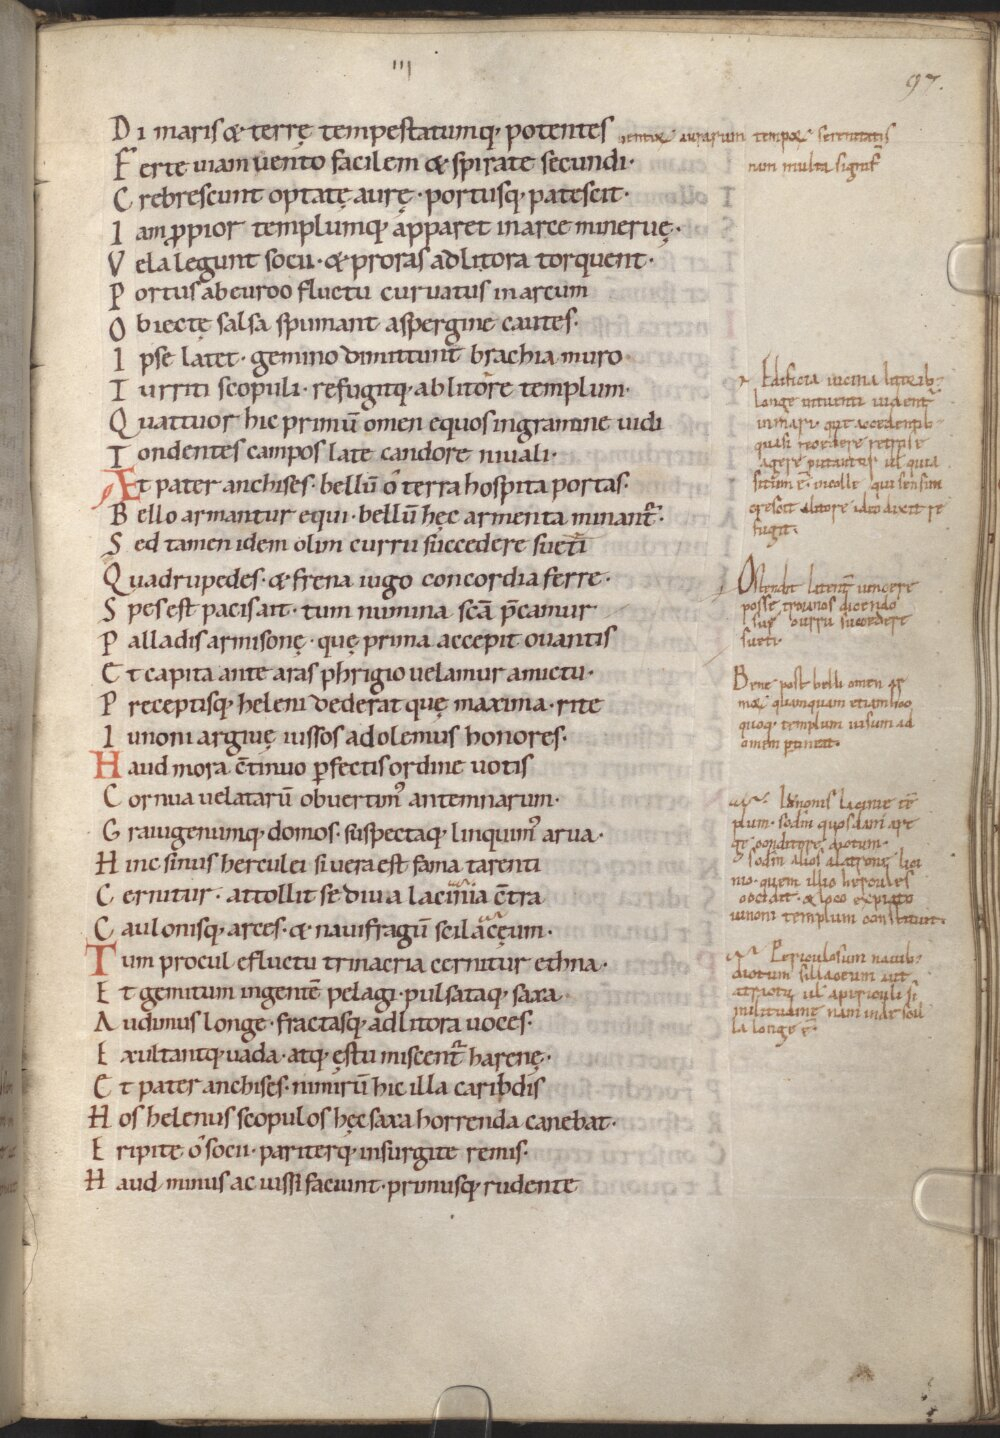 III
97.
D i maris & terrę tempestatumq; potentes
F erte uiam uento facilem & spirate secundi·
C rebrescunt optatę aurę· portusq; patescit·
I am p̱pior templumq; apparet in arce mineruę·
V ela legunt socii· & proras ad litora torquent·
P ortus ab euroo fluctu curuatus in arcum
O biectę salsa spumant aspergine cautes·
I pse latet· gemino dimittunt brachia muro·
T urriti scopuli· refugitq; ab litore templum·
Q uattuor hic primū omen equos in gramine uidi
T ondentes campos late candore niuali·
Et pater anchises· bellū o terra hospita portas·
B ello armantur equi· bellū hęc armenta minant᷑·
S ed tamen idem olim curru succedere sueti
Q uadrupedes· & frena iugo concordia ferre·
S pes est pacis ait· tum numina scā p̄camur
P alladis armisonę· quę prima accepit ouantis
E t capita ante aras phrigio uelamur amictu·
P receptisq; heleni dederat quę maxima· rite
I unoni argiuę iussos adolemus honores·
H aud mora c̄tinuo ꝑfectis ordine uotis
C ornua uelatarū obuertim᷒ antemnarum·
G raiugenumq; domos· suspectaq; linquim᷒ arua·
H inc sinus herculei si uera est fama tarenti
C ernitur· attollit se diua lacinia c̄tra
C aulonisq; arces· & nauifragū scilaceum·
T um procul e fluctu trinacria cernitur ethna·
E t gemitum ingentē pelagi· pulsataq; saxa
A udimus longe· fractasq; ad litora uoces·
E xultantq; uada· atq; ęstu miscent᷑ harenę·
E t pater anchises· nimirū hic illa caribdis
H os helenus scopulos hęc saxa horrenda canebat·
E ripite o socii· pariterq; insurgite remis·
H aud minus ac iussi faciunt· primusq; rudente
aurarum tempꝫ serenitatis
nam multa signif̄
Edificia uicina litorib;
longe intuenti uident᷑
in mari· aut accedentib;
quasi recedere retro se
agere putantur ul' quia
situm ē in colle qui sensim
crescit a litore ideo dixit re
fugit·
Ostendit
posse trouinos dicendo
curru succedere
sueti·
Bene post belli omen ar
quamquam etiam hoc
quoq; templum uisum ad
omen ptineat·
Iunonis lacinie tē
plum· sodm̄ quosdam a re
ge conditore dictum·
sodm̄ alios a latrone laci
nio· quem illic hercules
occidit· & loco expiato
iunoni templum constituit·
Periculosum nauib;
dictum sillaceum aut
ul' a periculi si
militudine nam inde scil
la longe ē·